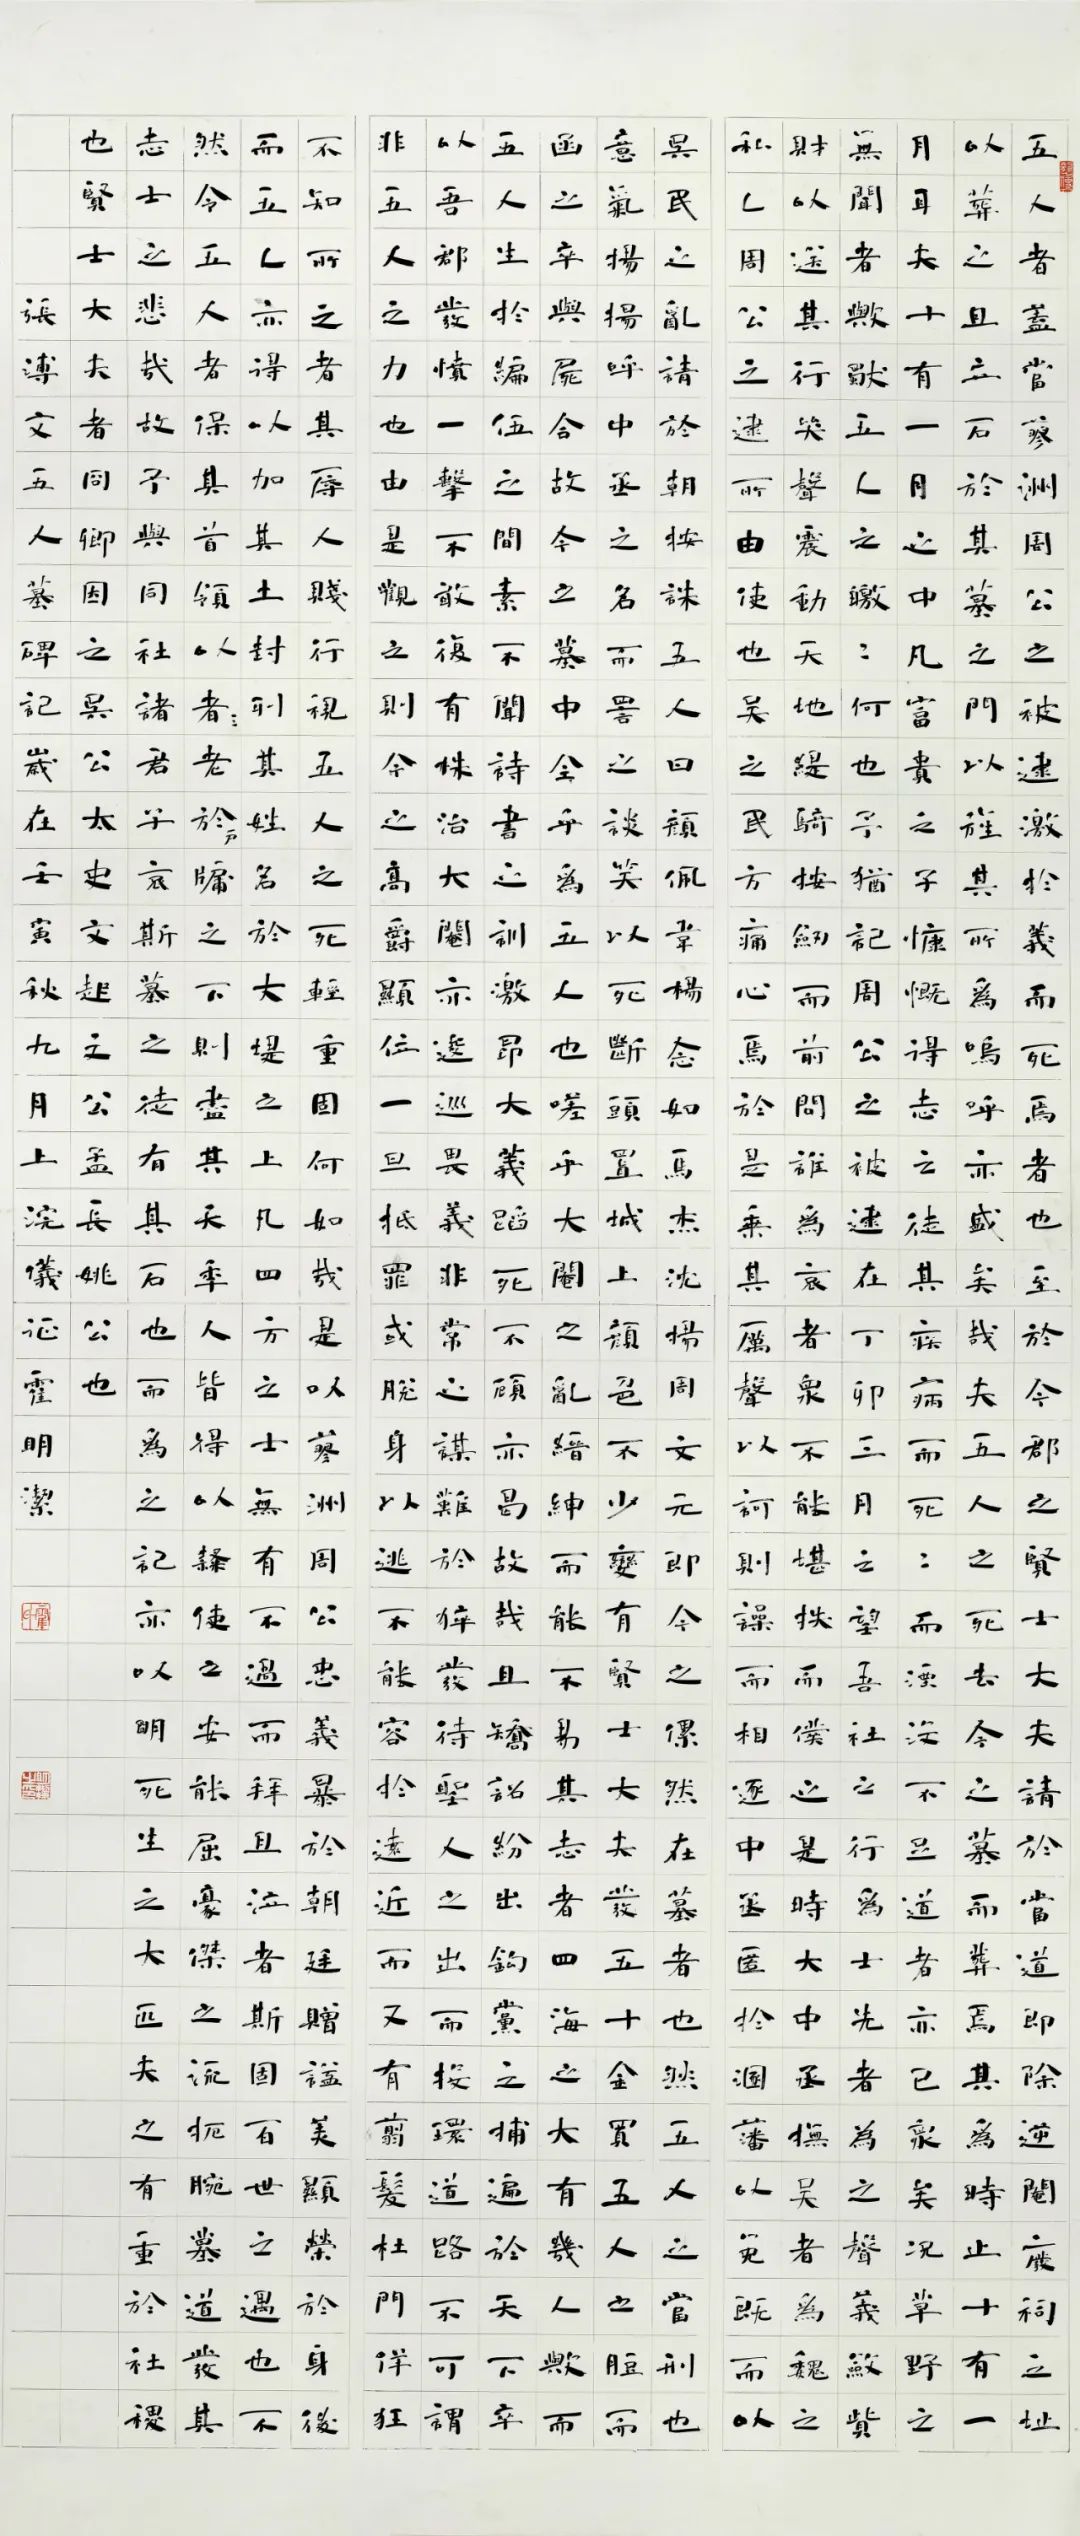 五人者蓋當蓼洲周公之被逮激於義而死焉者也至於今郡之賢士大夫請於當道即除逆閹廢祠之址
以葬之且立石於其墓之門以旌其所爲嗚呼亦盛矣哉夫五人之死去今之墓而葬焉其爲時止十有一
月耳夫十有一月之中凡富貴之子慷慨得志之徒其疾病而死〻而湮没不足道者亦已衆矣況草野之
無聞者歟獸五人之皦〻何也予猶記周公之被逮在丁卯三月之望吾社之行爲士先者為之聲義斂貲
財以送其行哭聲震動天地緹騎按劒而前問誰爲哀者衆不能堪抶而僕之是時大中丞撫吳者爲魏之
私人周公之逮所由使也吳之民方痛心焉於是乘其厲聲以訶則譟而相逐中丞匿於溷藩以免既而以
吳民之亂請於朝按誅五人曰顏佩韋楊念如馬杰沈揚周文元即今之傫然在墓者也然五人之當刑也
意氣揚揚呼中丞之名而詈之談笑以死斷頭置城上顏色不少變有賢士大夫發五十金買五人之脰而
函之卒與屍合故今之墓中全乎爲五人也嗟乎大閹之亂縉紳而能不易其志者四海之大有幾人歟而
五人生於編伍之間素不聞詩書之訓激昂大義蹈死不顧亦曷故哉且矯詔紛出鈎黨之捕遍於天下卒
以吾郡發憤一擊不敢復有株治大閹亦逡巡畏義非常之謀難於猝發待聖人之出而投環道路不可謂
非五人之力也由是觀之則今之高爵顯位一旦抵罪或脫身以逃不能容於遠近而又有翦髮杜門佯狂
不知所之者其辱人賤行視五人之死輕重固何如哉是以蓼洲周公忠義暴於朝廷贈謚美顯榮於身後
而五人亦得以加其土封列其姓名於大堤之上凡四方之士無有不過而拜且泣者斯固百世之遇也不
然令五人者保其首領以者〻老於户牖之下則盡其天年人皆得以隸使之安能屈豪傑之流扼腕墓道發其
志士之悲哉故予與同社諸君子哀斯墓之徒有其石也而爲之記亦以明死生之大匹夫之有重於社稷
也賢士大夫者冏卿因之吳公太史文起文公孟長姚公也
張溥文五人墓碑記歲在壬寅秋九月上浣儀征霍明潔